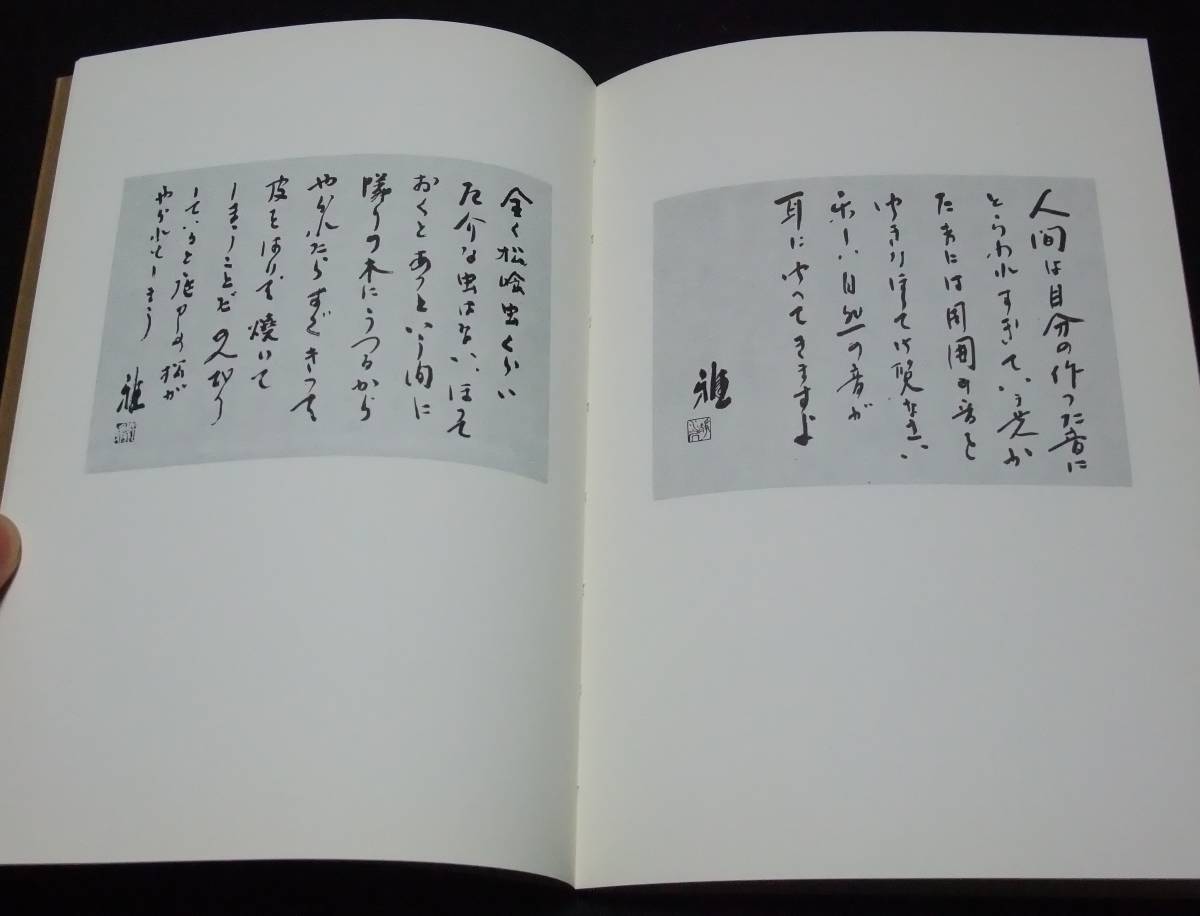 人間は自分の作った音に
とらわれすぎている或か
たまには周囲の音を
ゆきりすてて御覧なさい
楽しい自然の音が
耳に伝ってきますよ
雅
全く松喰虫くらい
厄介な虫はない、ほって
おくとあっという間に
隣りの木にうつるから
やられたらすぐきって
皮をはいで焼いて
しまうことだのんびり
していると庭中の松が
やられてしまう
雅